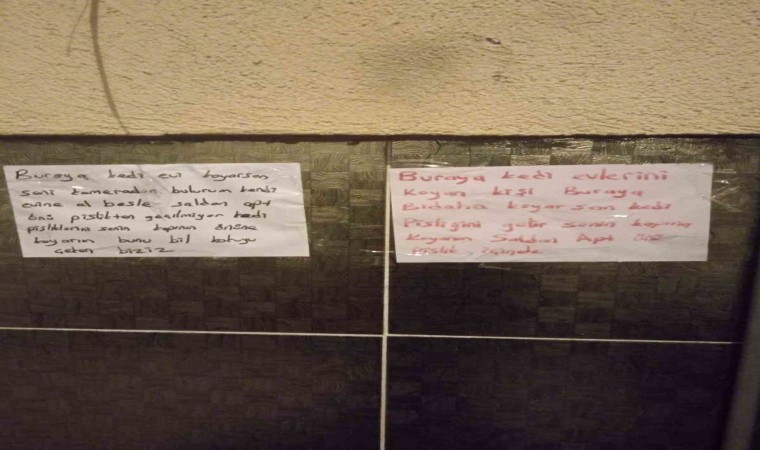 Buraya kedi evi koyarsan
seni kameradan bulurum kendi
evine al besle saldan apt
önü pislikten geçilmiyor kedi
pisliklerini senin kapının önüne
koyarım bunu bil kokuyu
çeken biziz
Buraya kedi evlerini
koyan kişi Buraya
Bidaha koyarsan kedi
Pisliğini getir senin kapına
Koyarım Saldan Apt önü
Pislik içinde